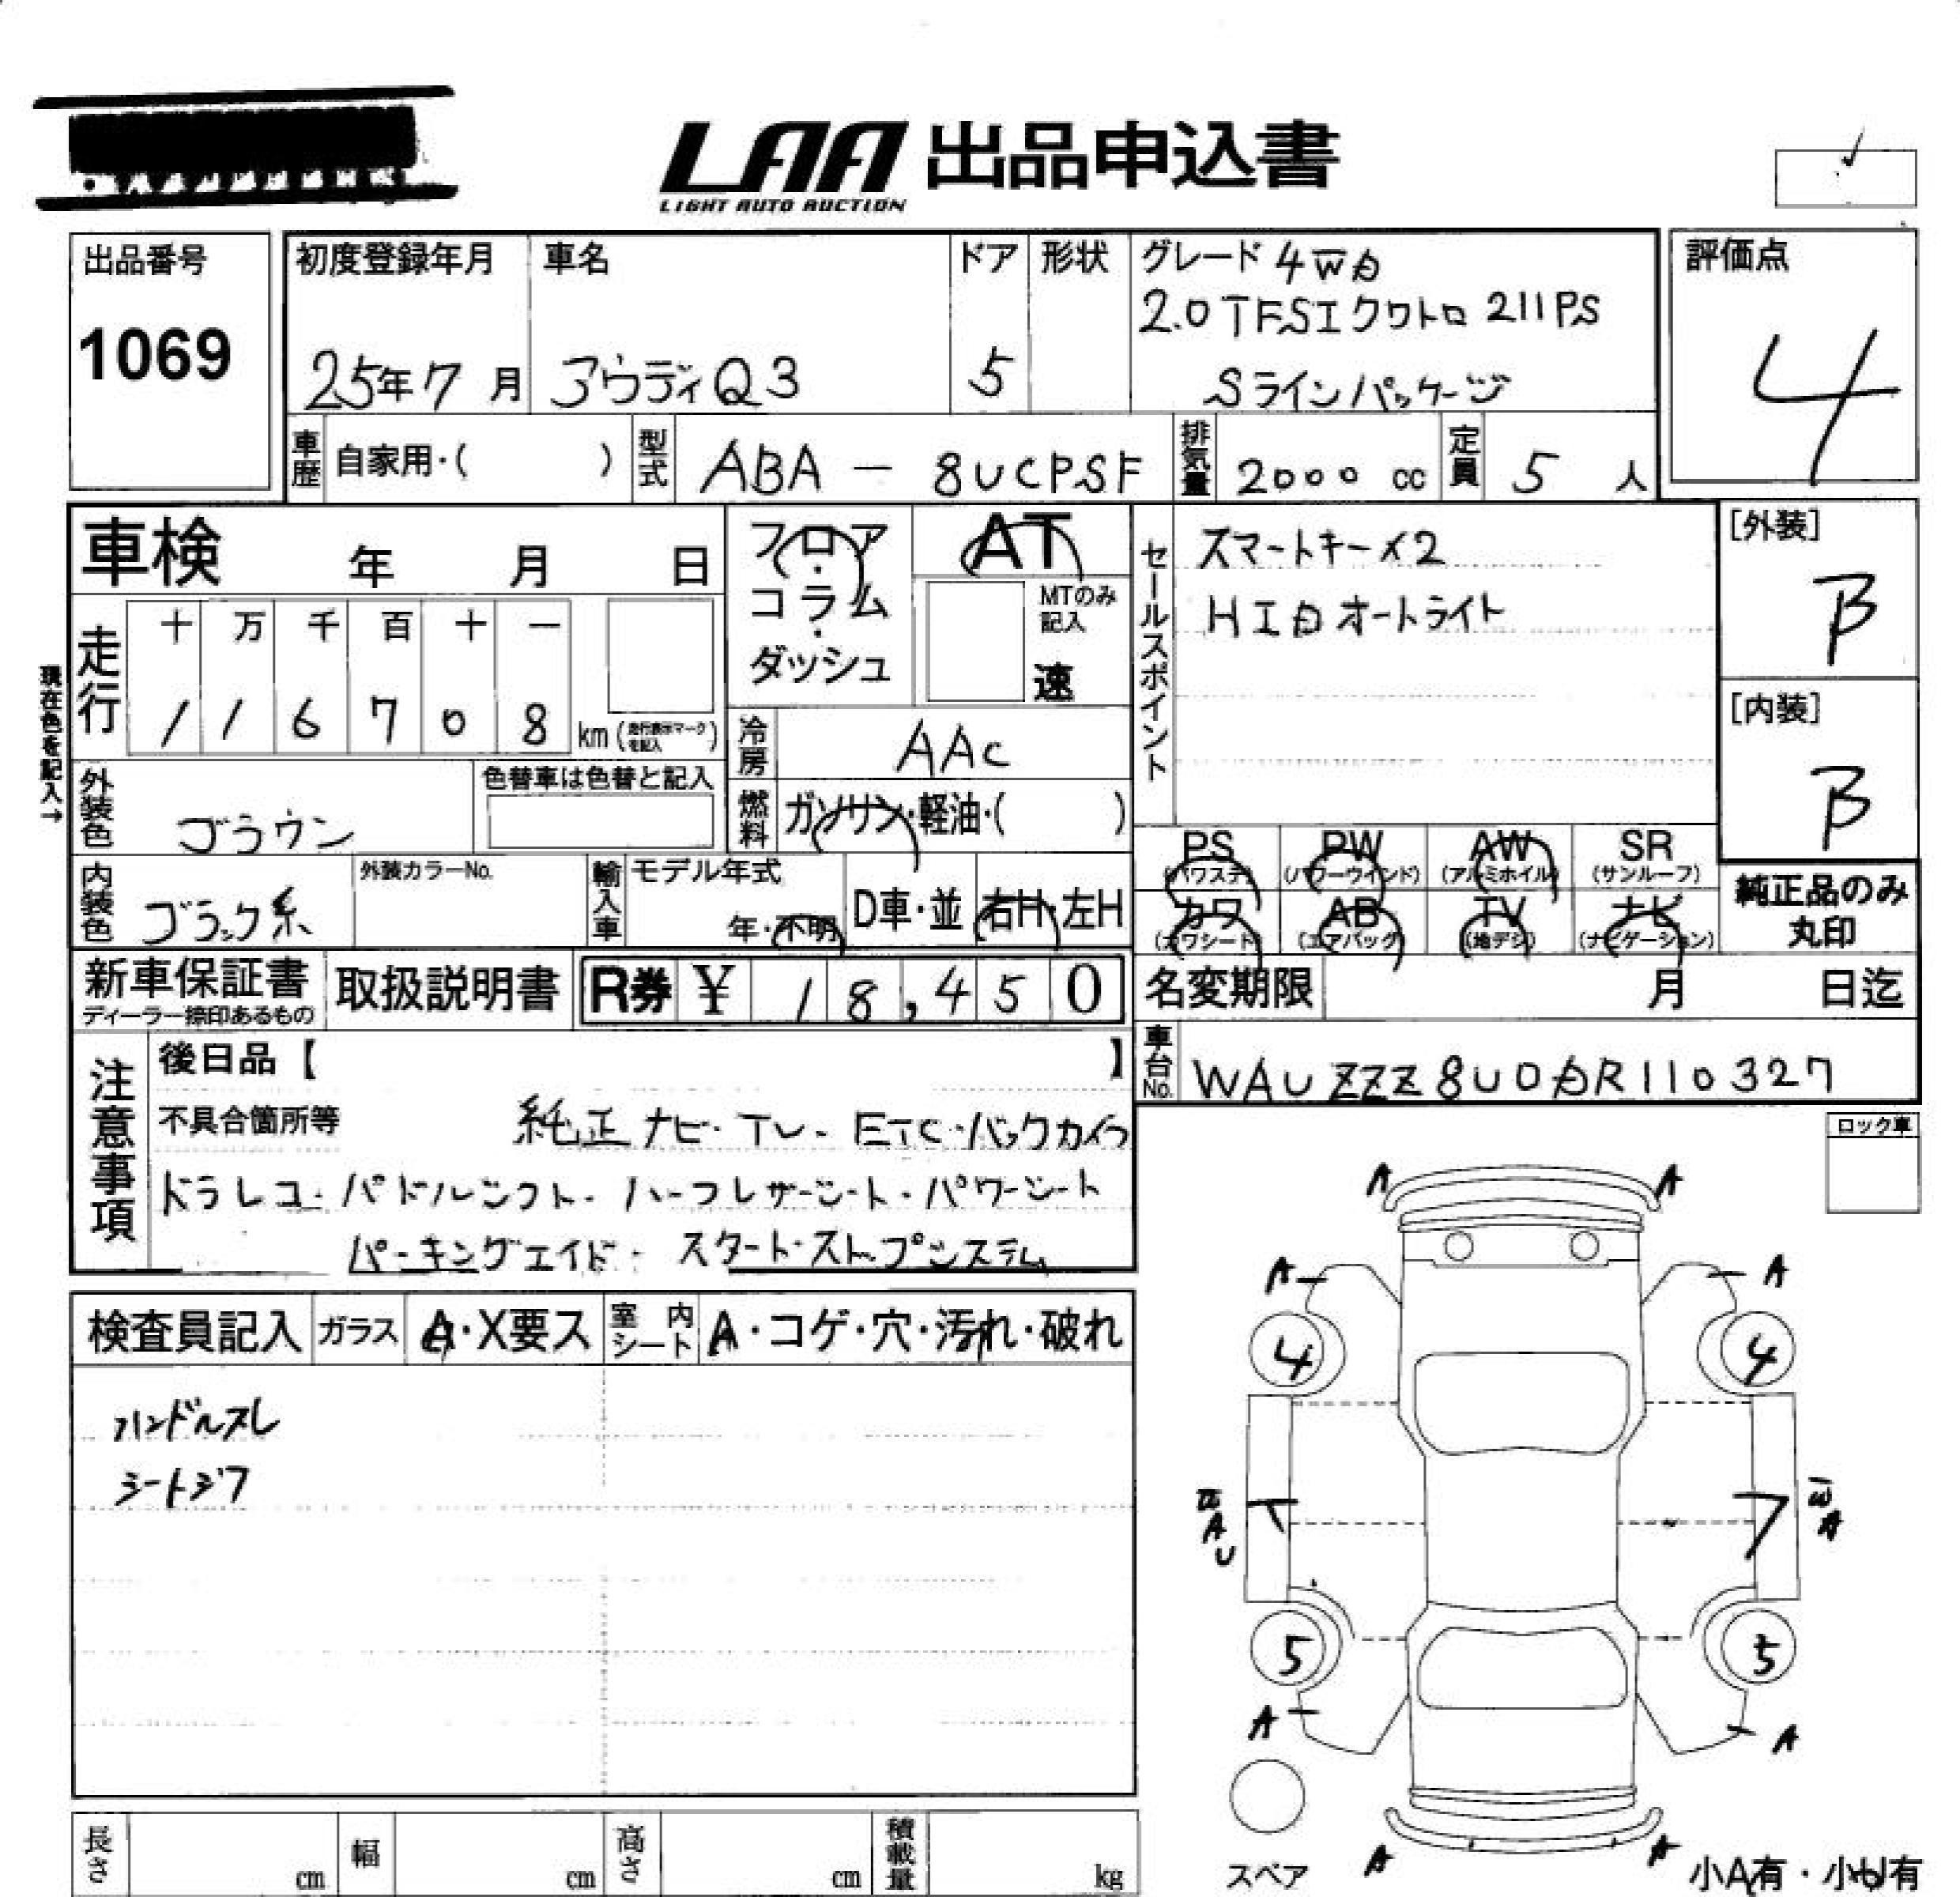 LAA 出品申込書
LIGHT AUTO AUCTION
出品番号
1069
初度登録年月
25年7月
車名
アウディQ3
ドア
5
形状
グレード 4WD
2.0TFSIクワトロ 211PS
Sラインパッケージ
評価点
4
車歴 自家用・( )
型式 ABA - 8UCPSF
排気量 2000 cc
定員 5 人
車検 年 月 日
現在色を記入→
走行
十 万 千 百 十 一
1 1 6 7 0 8 km (走行表示マークを記入)
フロア・コラム・ダッシュ
AT
MTのみ記入
速
冷房 AAC
燃料 ガソリン・軽油・( )
セールスポイント
スマートキー×2
HIDオートライト
[外装]
B
[内装]
B
外装色 ブラウン
色替車は色替と記入
内装色 ブラック系
外装カラーNo.
輸入車
モデル年式
年・不明
D車・並
右H・左H
PS (パワステ)
PW (パワーウインド)
AW (アルミホイル)
SR (サンルーフ)
カワ (カワシート)
AB (エアバッグ)
TV (地デジ)
ナビ (ナビゲーション)
純正品のみ丸印
新車保証書
ディーラー捺印あるもの
取扱説明書
R券 ¥ 18,450
名変期限 月 日迄
車台No. WAUZZZ8U0DR110327
注意事項
後日品【 】
不具合箇所等 純正ナビ・TV・ETC・バックカメラ
ドラレコ・パドルシフト・ハーフレザーシート・パワーシート
パーキングエイド・スタート・ストップシステム
ロック車
検査員記入
ガラス A・X要ス
室内シート A・コゲ・穴・汚れ・破れ
ハンドルスレ
シートシワ
A A
A A
4 4
W A U
W A
5 5
A A
スペア
A A
小A有・小U有
長さ cm
幅 cm
高さ cm
積載量 kg